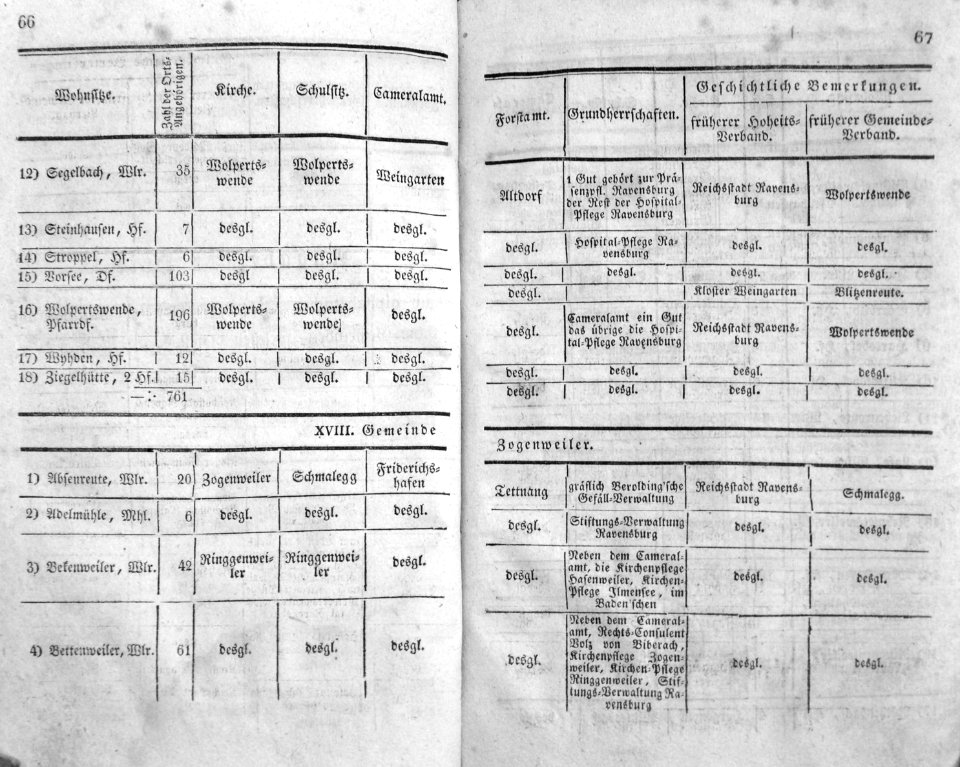 66
Wohnsitze.
Zahl der Orts-
Angehörigen.
Kirche.
Schulsitz.
Cameralamt.
12) Segelbach, Wlr. 35 Wolperts- Wolperts- Weingarten
wende wende
13) Steinhausen, Hf. 7 desgl. desgl. desgl.
14) Stroppel, Hf. 6 desgl. desgl. desgl.
15) Vorsee, Df. 103 desgl desgl. desgl.
16) Wolpertswende, 196 Wolperts- Wolperts- desgl.
Pfarrdf. wende wende
17) Wyhden, Hf. 12 desgl. desgl. desgl.
18) Ziegelhütte, 2 Hf. 15 desgl. desgl. desgl.
—:· 761
XVIII. Gemeinde
1) Absenreute, Wlr. 20 Zogenweiler Schmalegg Friderichs-
hafen
2) Adelmühle, Mhl. 6 desgl. desgl. desgl.
3) Bekenweiler, Wlr. 42 Ringgenwei- Ringgenwei- desgl.
ler ler
4) Bettenweiler, Wlr. 61 desgl. desgl. desgl.
67
Forstamt.
Grundherrschaften.
Geschichtliche Bemerkungen.
früherer Hoheits-
Verband.
früherer Gemeinde-
Verband.
Altdorf
1 Gut gehört zur Prä-
senzpfl. Ravensburg
der Rest der Hospital-
Pflege Ravensburg
Reichstadt Ravens-
burg
Wolpertswende
desgl.
Hospital-Pflege Ra-
vensburg
desgl.
desgl.
desgl. desgl. desgl. desgl.
desgl. Kloster Weingarten Blitzenreute.
desgl.
Cameralamt ein Gut
das übrige die Hospi-
tal-Pflege Ravensburg
Reichstadt Ravens-
burg
Wolpertswende
desgl. desgl. desgl. desgl.
desgl. desgl. desgl. desgl.
Zogenweiler.
Tettnang
gräflich Berolding'sche
Gefäll-Verwaltung
Reichstadt Ravens-
burg
Schmalegg.
desgl.
Stiftungs-Verwaltung
Ravensburg
desgl.
desgl.
desgl.
Neben dem Cameral-
amt, die Kirchenpflege
Hasenweiler, Kirchen-
Pflege Ilmensee, im
Baden'schen
desgl.
desgl.
desgl.
Neben dem Cameral-
amt, Rechts-Consulent
Volz von Biberach,
Kirchenpflege Zogen-
weiler, Kirchen-Pflege
Ringgenweiler, Stif-
tungs-Verwaltung Ra-
vensburg
desgl.
desgl.